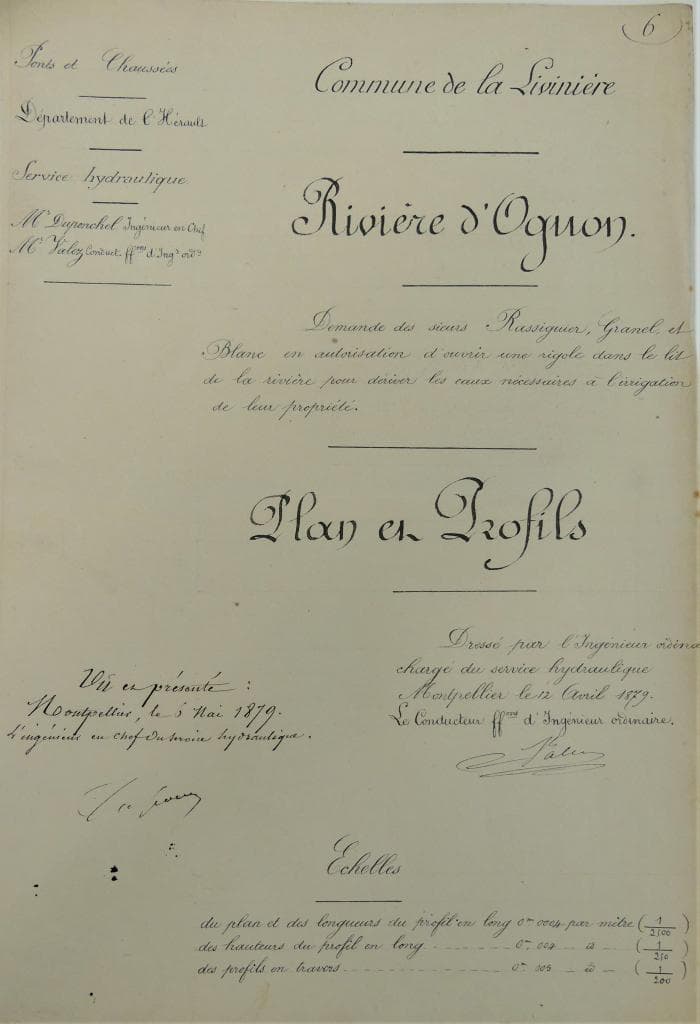 6
Ponts et Chaussées
Département de l'Hérault
Service hydraulique
Mr Duponchel Ingénieur en Chef
Mr Valez Conduct. ffons d'Ingr ordre
Commune de la Livinière
Rivière d'Ognon.
Demande des sieurs Rassiguier, Granel, et
Blanc en autorisation d'ouvrir une rigole dans le lit
de la rivière pour dériver les eaux nécessaires à l'irrigation
de leur propriété.
Plan et Profils
Dressé par l'Ingénieur ordinai
chargé du service hydraulique
Montpellier le 12 Avril 1879.
Le Conducteur ffons d'Ingénieur ordinaire,
Vu et présenté :
Montpellier, le 6 Mai 1879.
L'ingénieur en chef du service hydraulique.
Echelles
du plan et des longueurs du profil en long 0m 0004 par mètre (1/2500)
des hauteurs du profil en long 0m 004 d (1/250)
des profils en travers 0m 005 d (1/200)